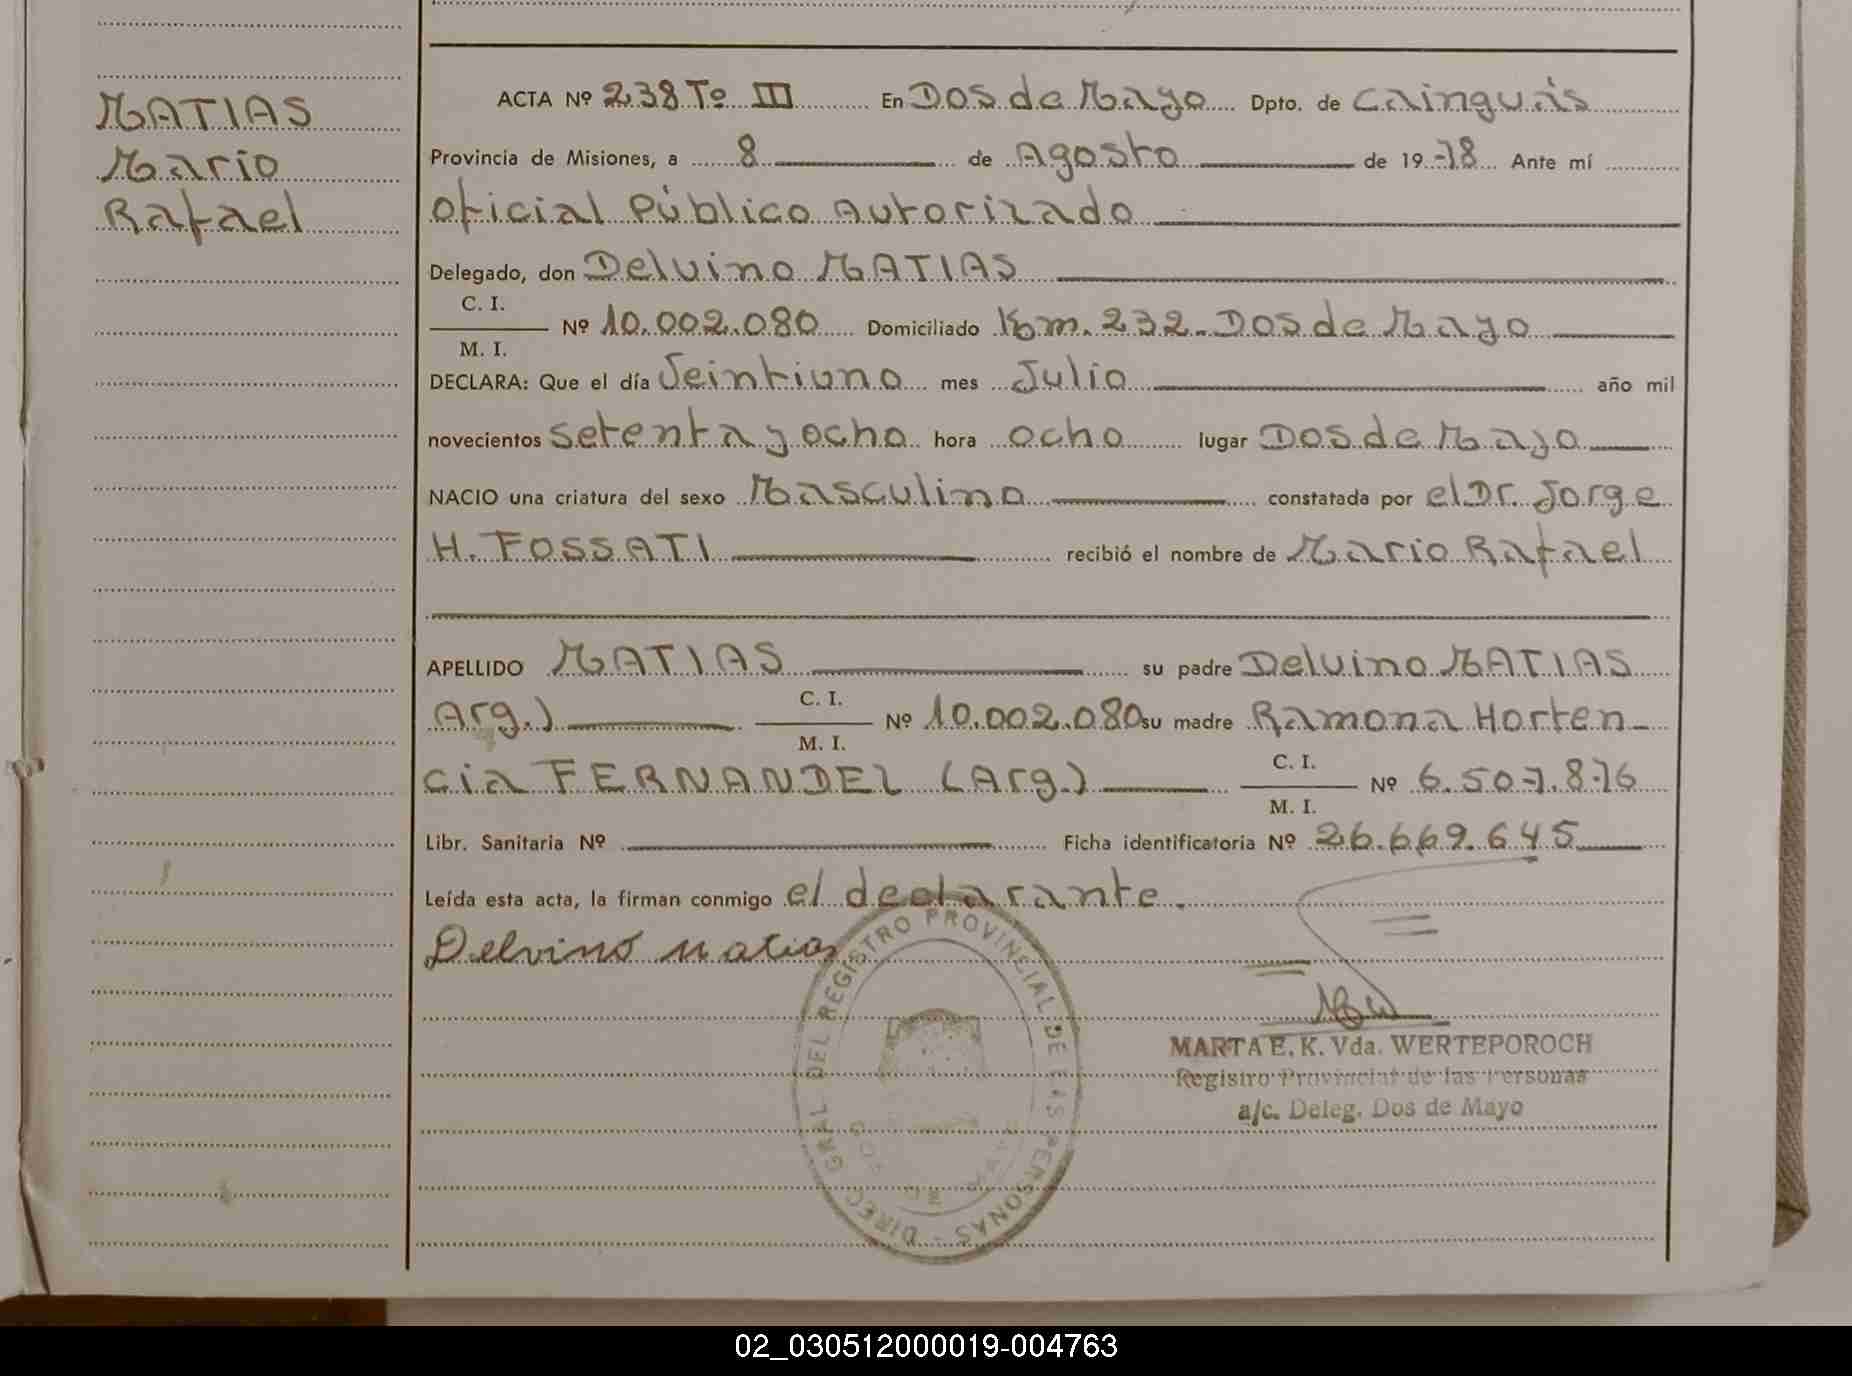 MATIAS
Mario
Rafael
ACTA Nº 238 Tº III En Dos de Mayo Dpto. de Cainguás
Provincia de Misiones, a 8 de Agosto de 1978 Ante mí
Oficial Público Autorizado
Delegado, don Delvino MATIAS
C. I.
Nº 10.002.080 Domiciliado Km. 232-Dos de Mayo
M. I.
DECLARA: Que el día Veintiuno mes Julio año mil
novecientos setenta y ocho hora ocho lugar Dos de Mayo
NACIO una criatura del sexo Masculino constatada por el Dr. Jorge
H. FOSSATI recibió el nombre de Mario Rafael
APELLIDO MATIAS su padre Delvino MATIAS
Arg.) C. I. Nº 10.002.080 su madre Ramona Horten-
M. I.
cia FERNANDEZ (Arg.) C. I. Nº 6.507.876
M. I.
Libr. Sanitaria Nº Ficha identificatoria Nº 26.669.645
Leída esta acta, la firman conmigo el declarante.
Delvino Matias
DIREC. GRAL DEL REGISTRO PROVINCIAL DE LAS PERSONAS -
DOS DE MAYO
MARTA E. K. Vda. WERTEPOROCH
Registro Provincial de las Personas
a/c. Deleg. Dos de Mayo
02_030512000019-004763